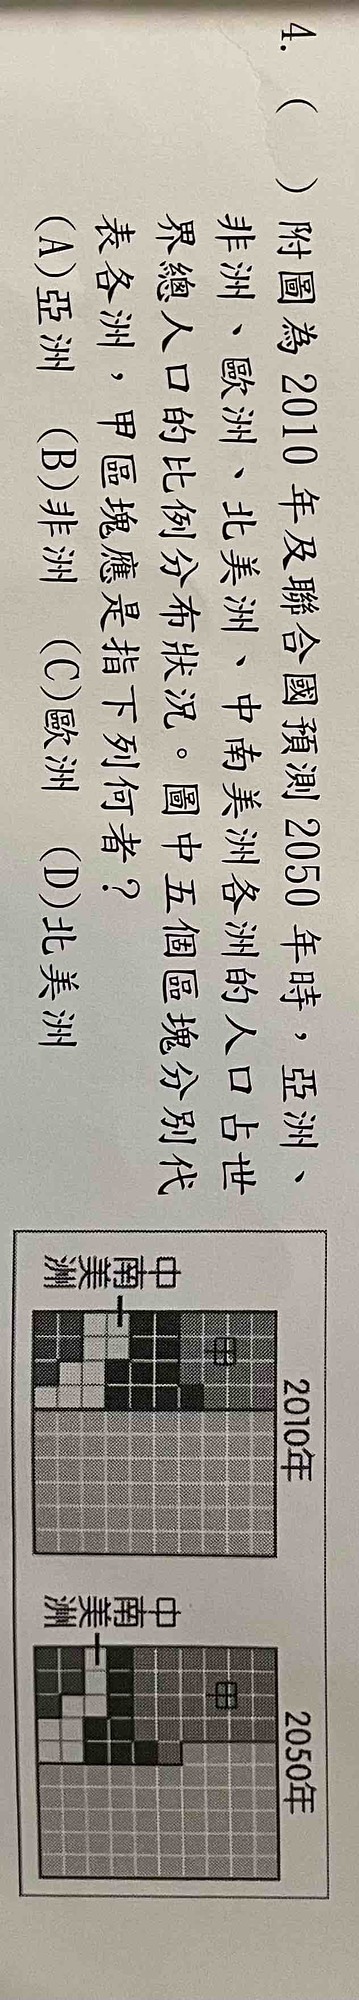 4. (　) 附圖為 2010 年及聯合國預測 2050 年時，亞洲、
非洲、歐洲、北美洲、中南美洲各洲的人口占世
界總人口的比例分布狀況。圖中五個區塊分別代
表各洲，甲區塊應是指下列何者？
(A)亞洲 (B)非洲 (C)歐洲 (D)北美洲
2010年
甲
中南美洲
2050年
甲
中南美洲